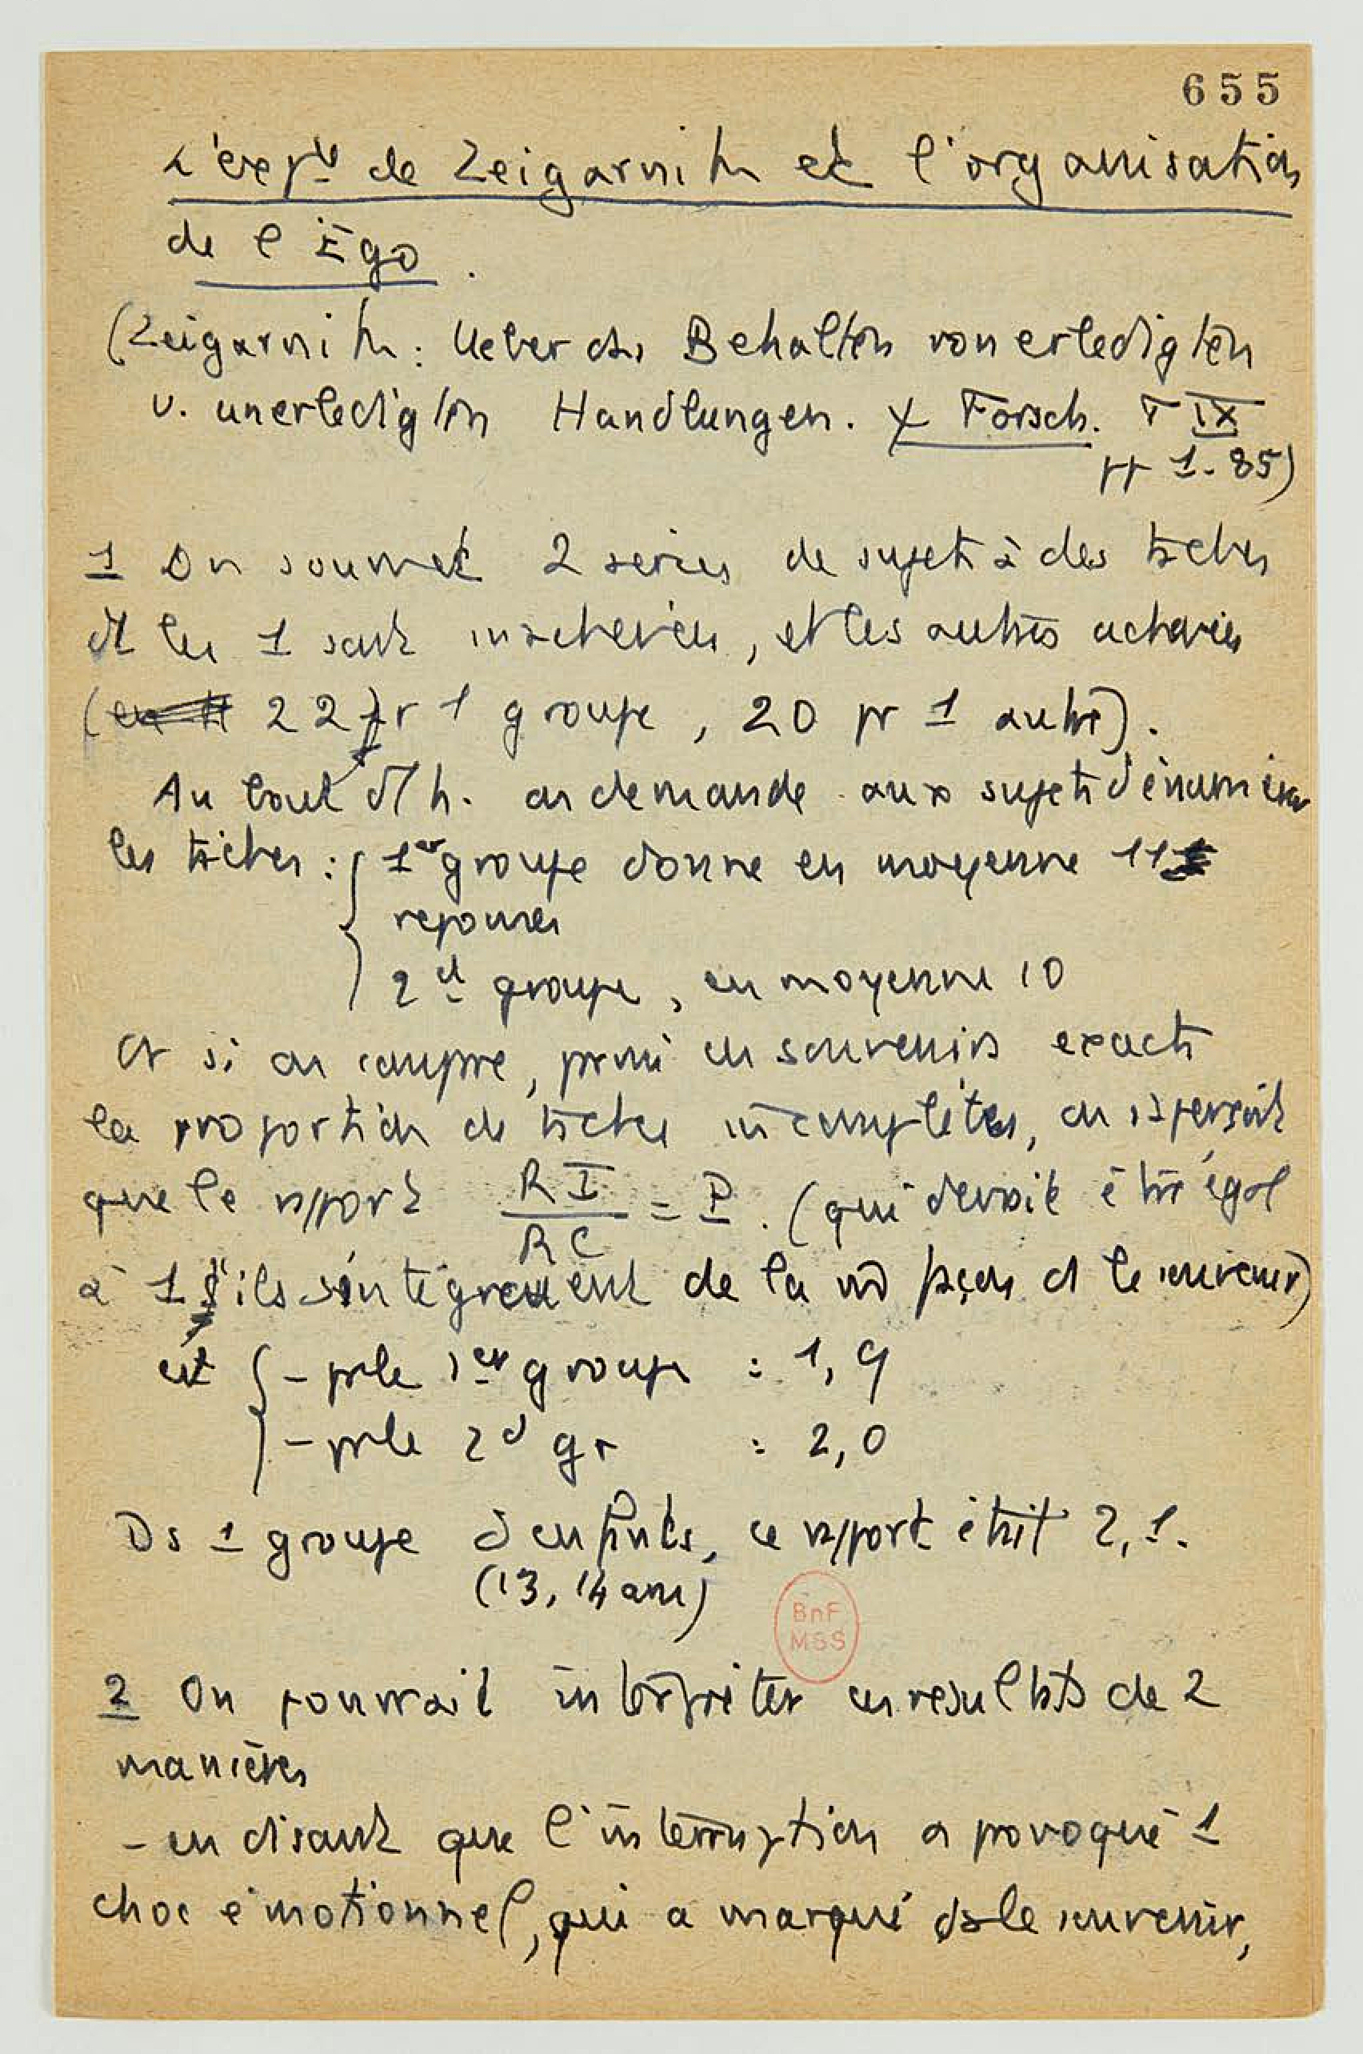 655
L'expce de Zeigarnik et l'organisation
de l'Ego.
(Zeigarnik : Ueber das Behalten von erledigten
u. unerledigten Handlungen. ψ Forsch. T IX
pp 1-85)
1 On soumet 2 séries de sujets à des tâches
dt les 1 sont inachevées, et les autres achevées
(22 pr 1 groupe, 20 pr 1 autre).
Au bout d'1 h. on demande aux sujets d'énumérer
les tâches : 1er groupe donne en moyenne 11
réponses
2d groupe, en moyenne 10
Or si on compare, parmi ces souvenirs exacts
la proportion de tâches incomplètes, on s'aperçoit
que le rapport RI = P. (qui devrait être égal
RC
à 1 s'ils s'intégraient de la m façon ds le souvenir)
est - pr le 1er groupe : 1,9
- pr le 2d gr : 2,0
Ds 1 groupe d'enfants, ce rapport était 2,1.
(13, 14 ans)
BnF
MSS
2 On pourrait interpréter ces résultats de 2
manières
- en disant que l'interruption a provoqué 1
choc émotionnel, qui a marqué ds le souvenir,